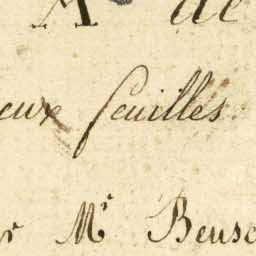 de
eux feuilles
r Mr Beus